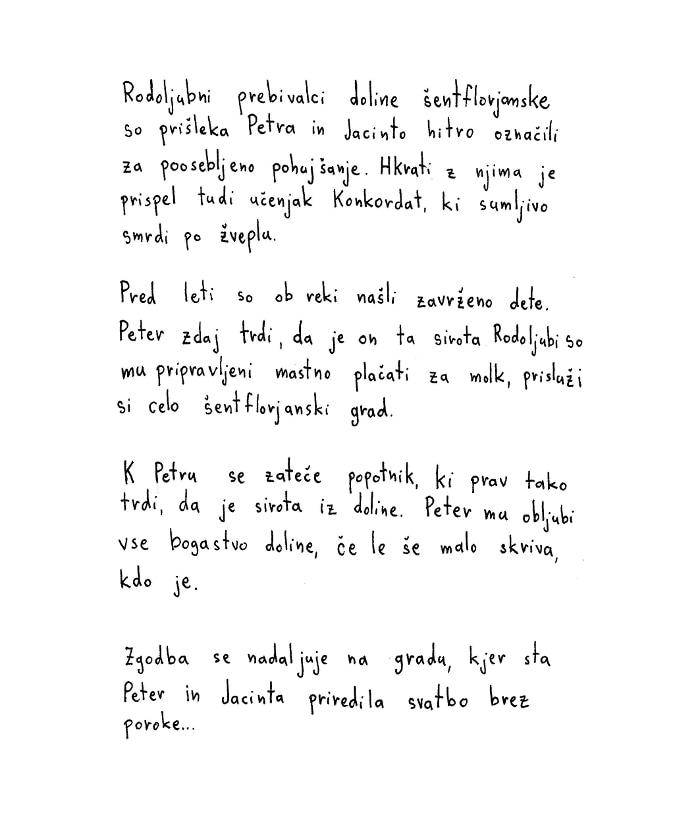 Rodoljubni prebivalci doline šentflorjanske
so prišleka Petra in Jacinto hitro označili
za poosebljeno pohujšanje. Hkrati z njima je
prispel tudi učenjak Konkordat, ki sumljivo
smrdi po žveplu.
Pred leti so ob reki našli zavrženo dete.
Peter zdaj trdi, da je on ta sirota Rodoljubi so
mu pripravljeni mastno plačati za molk, prisluži
si celo šentflorjanski grad.
K Petru se zateče popotnik, ki prav tako
trdi, da je sirota iz doline. Peter mu obljubi
vse bogastvo doline, če le še malo skriva,
kdo je.
Zgodba se nadaljuje na gradu, kjer sta
Peter in Jacinta priredila svatbo brez
poroke...